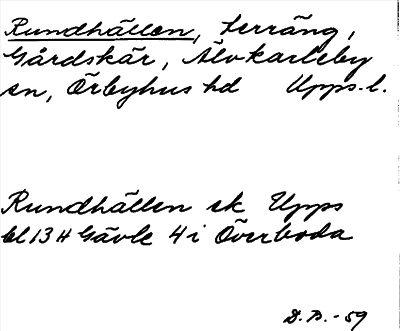 Rundhällen, terräng,
Gårdskär, Älvkarleby
sn, Örbyhus hd Upps. l.
Rundhällen ek Upps
bl 13 H Gävle 4 i Överboda
D. B. -59